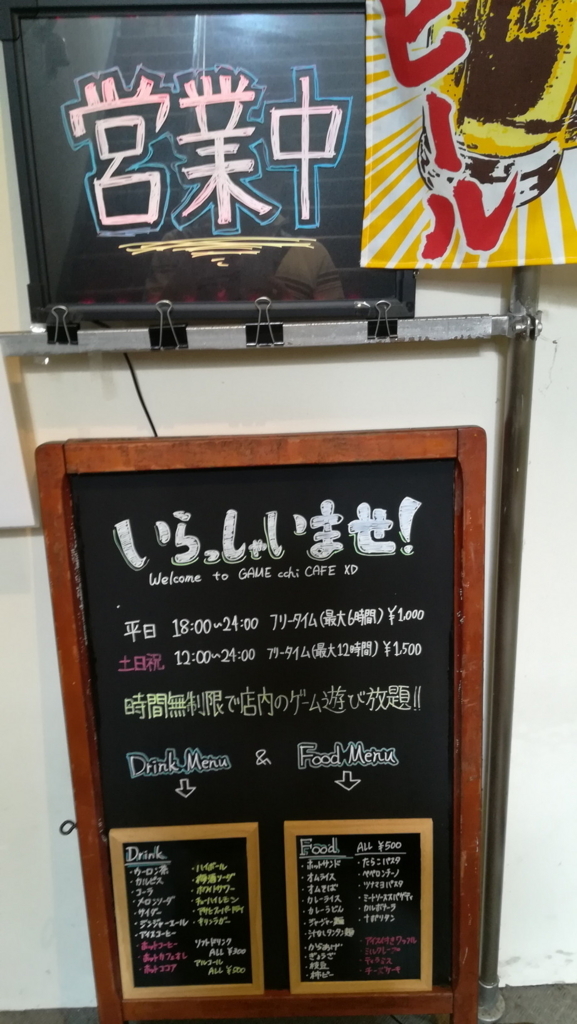 営業中
ビール
いらっしゃいませ!
Welcome to GAME cchi CAFE XD
平日 18:00~24:00 フリータイム(最大6時間)¥1,000
土日祝 12:00~24:00 フリータイム(最大12時間)¥1,500
時間無制限で店内のゲーム遊び放題!!
Drink Menu & Food Menu
Drink
・ウーロン茶
・カルピス
・コーラ
・メロンソーダ
・サイダー
・ジンジャーエール
・アイスコーヒー
・ホットコーヒー
・ホットカフェオレ
・ホットココア
・ハイボール
・梅酒ソーダ
・ホワイトサワー
・チューハイレモン
・アサヒスーパードライ
・キリンラガー
ソフトドリンク
ALL ¥300
アルコール
ALL ¥500
Food ALL ¥500
・ホットサンド
・オムライス
・オムそば
・カレーライス
・カレーうどん
・ジャージャー麺
・汁なしタンタン麺
・からあげ
・ぎょうざ
・枝豆
・柿ピー
・たらこパスタ
・ペペロンチーノ
・ツナマヨパスタ
・ミートソーススパゲティ
・カルボナーラ
・ナポリタン
・アイス付きワッフル
・ミルクレープ
・ティラミス
・チーズケーキ